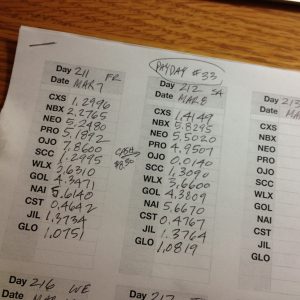 Day 211 FR
Date MAR 7
CXS 1.2996
NBX 2.2765
NEO 5.2480
PRO 5.1892
OJO 7.8600
SCC 1.2995
WLX 3.6310
GOL 4.3471
NAI 5.6140
CST 0.4642
JIL 1.3734
GLO 1.0751
CASH
$8.30
PAYDAY #33
Day 212 SA
Date MAR 8
CXS 1.4149
NBX 5.8295
NEO 5.5020
PRO 4.9507
OJO 0.0140
SCC 1.3090
WLX 3.6600
GOL 4.3809
NAI 5.6670
CST 0.4767
JIL 1.3764
GLO 1.0819
Day 213
Date
CXS
NBX
NEO
PRO
OJO
SCC
WLX
GOL
NAI
CST
JIL
GLO
Day 216 WE
Day 217